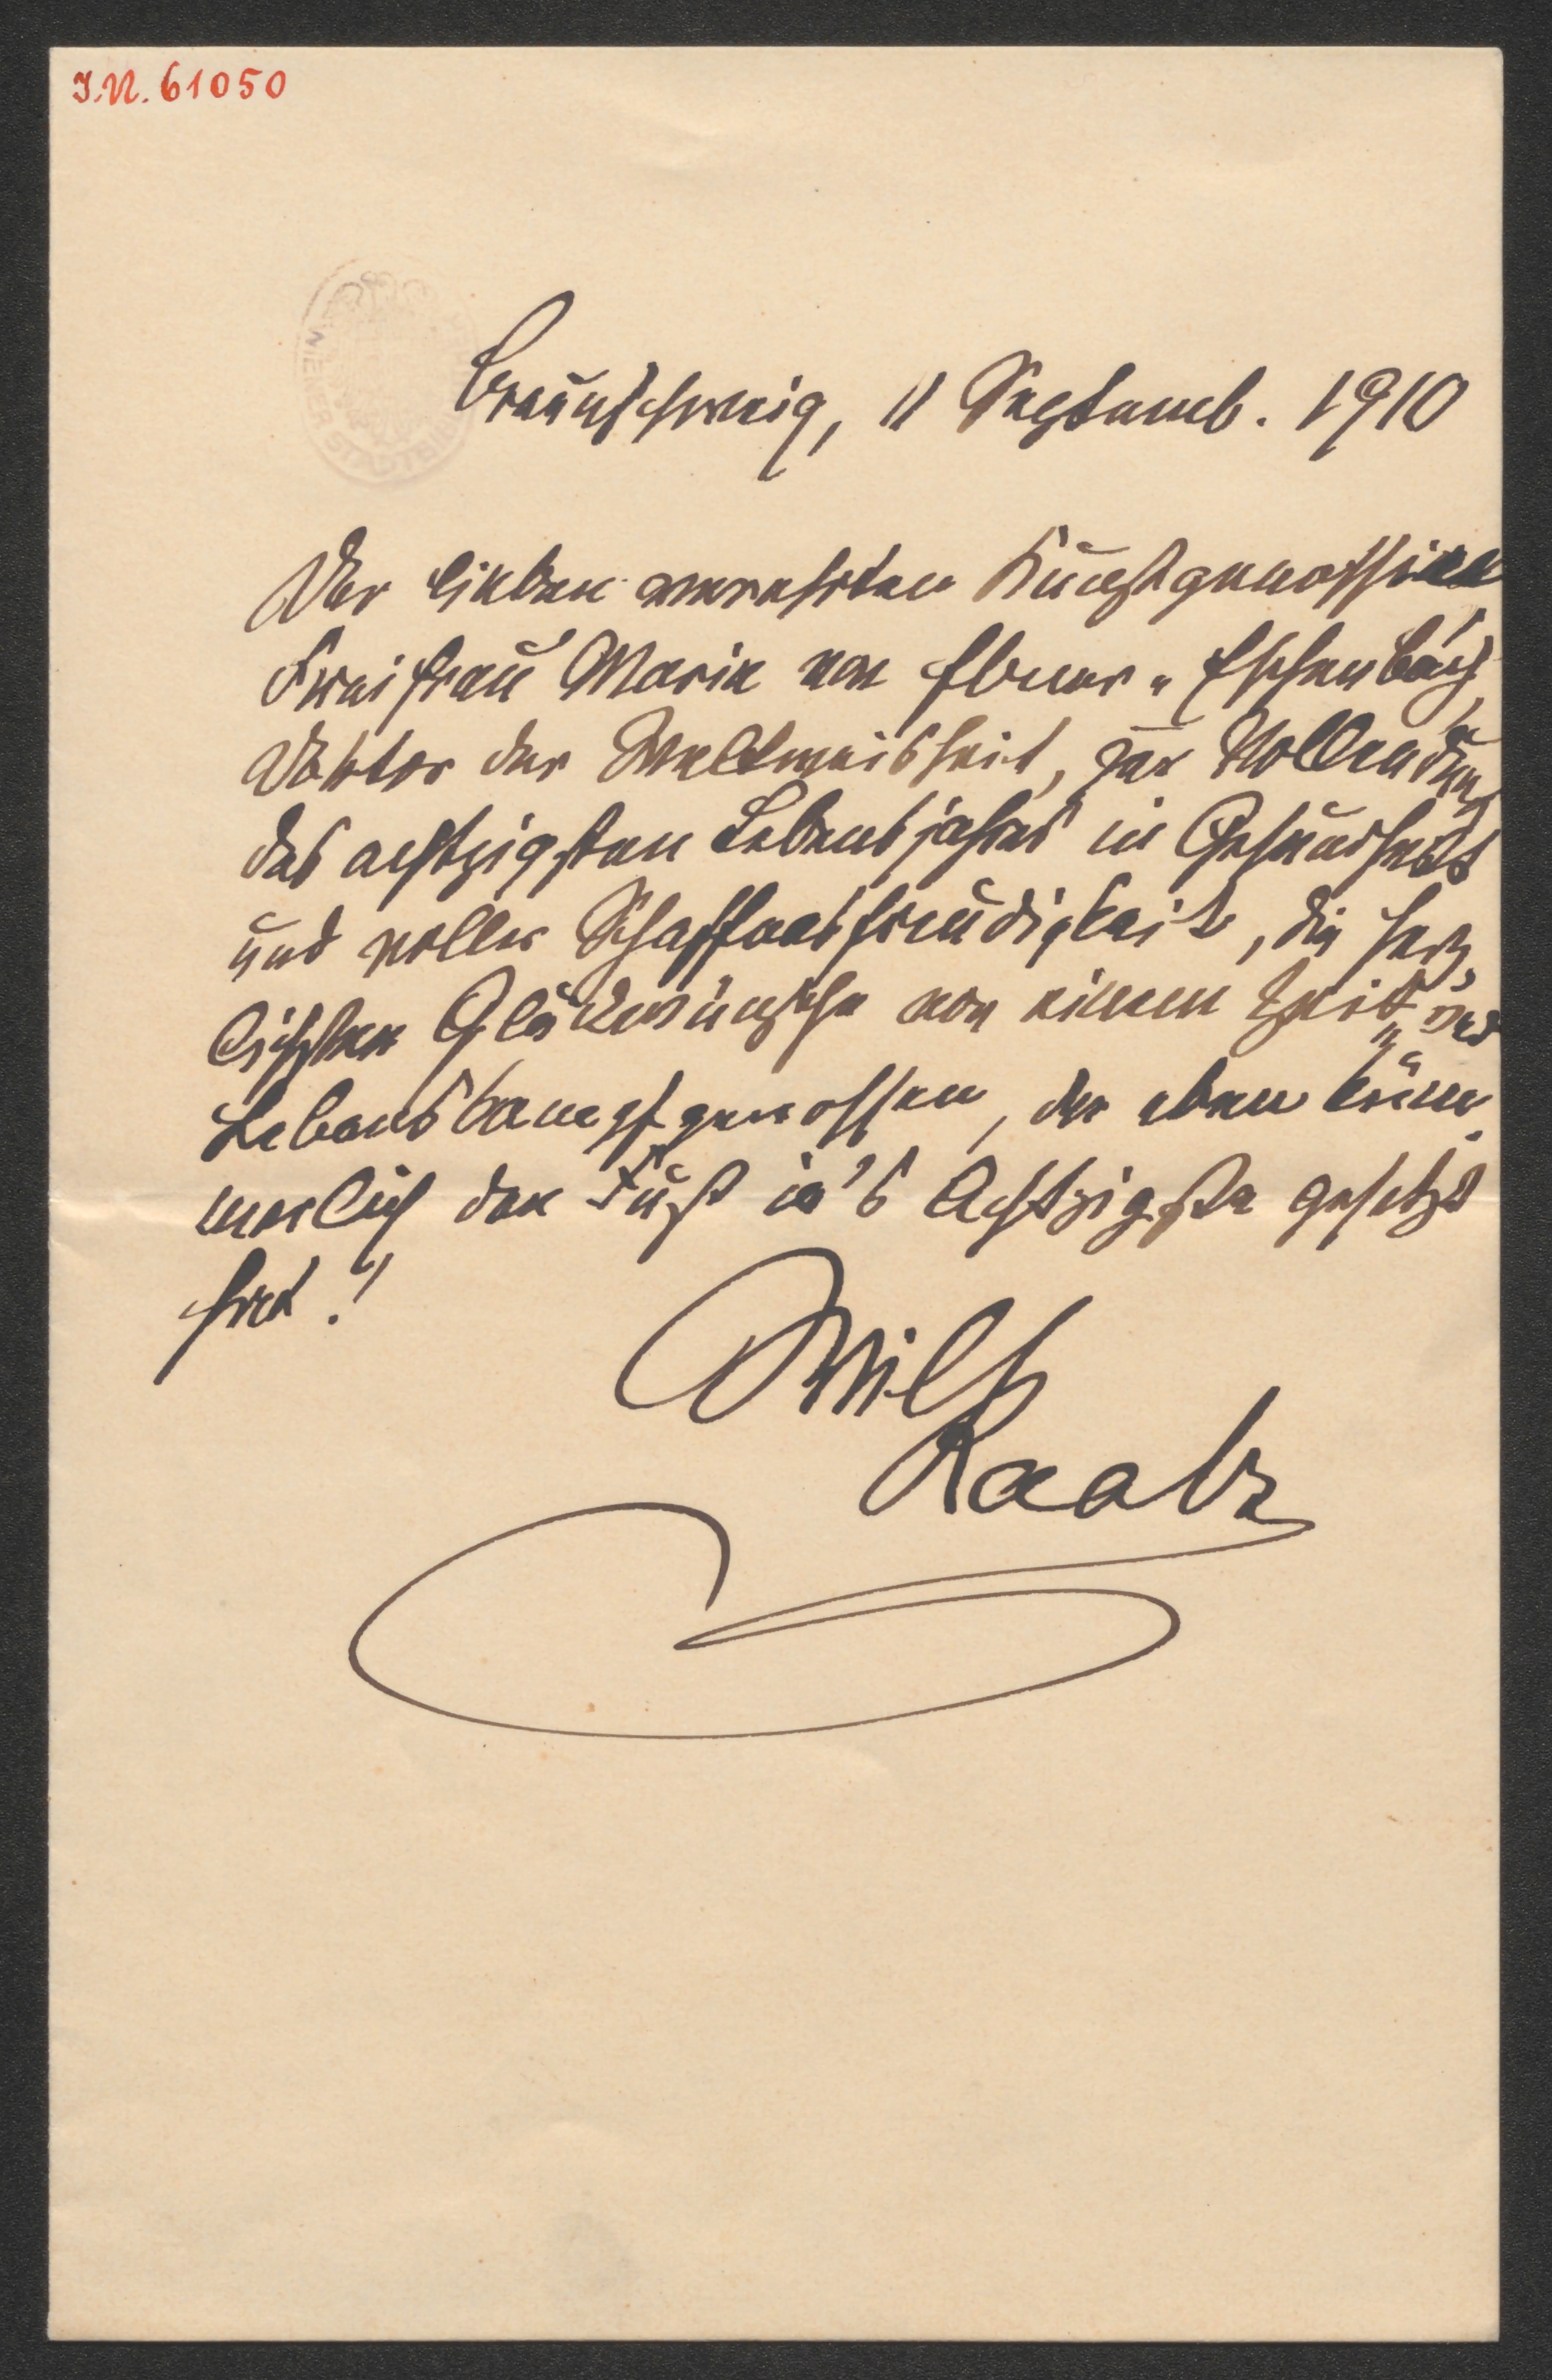 J.N. 61050
WIENER STADTBI
Braunschweig, 11 Septemb. 1910
Der lieben verehrten Kunstgenossin
Freifrau Marie von Ebner-Eschenbach,
Doktor der Weltweisheit, zur Vollendung
des achtzigsten Lebensjahres in Gesundheit
und voller Schaffensfreudigkeit, die herz-
lichsten Glückwünsche von einem Zeit- und
Lebenskampfgenossen, der eben küm-
merlich den Fuß in's Achtzigste gesetzt
hat!
Wilh
Raabe